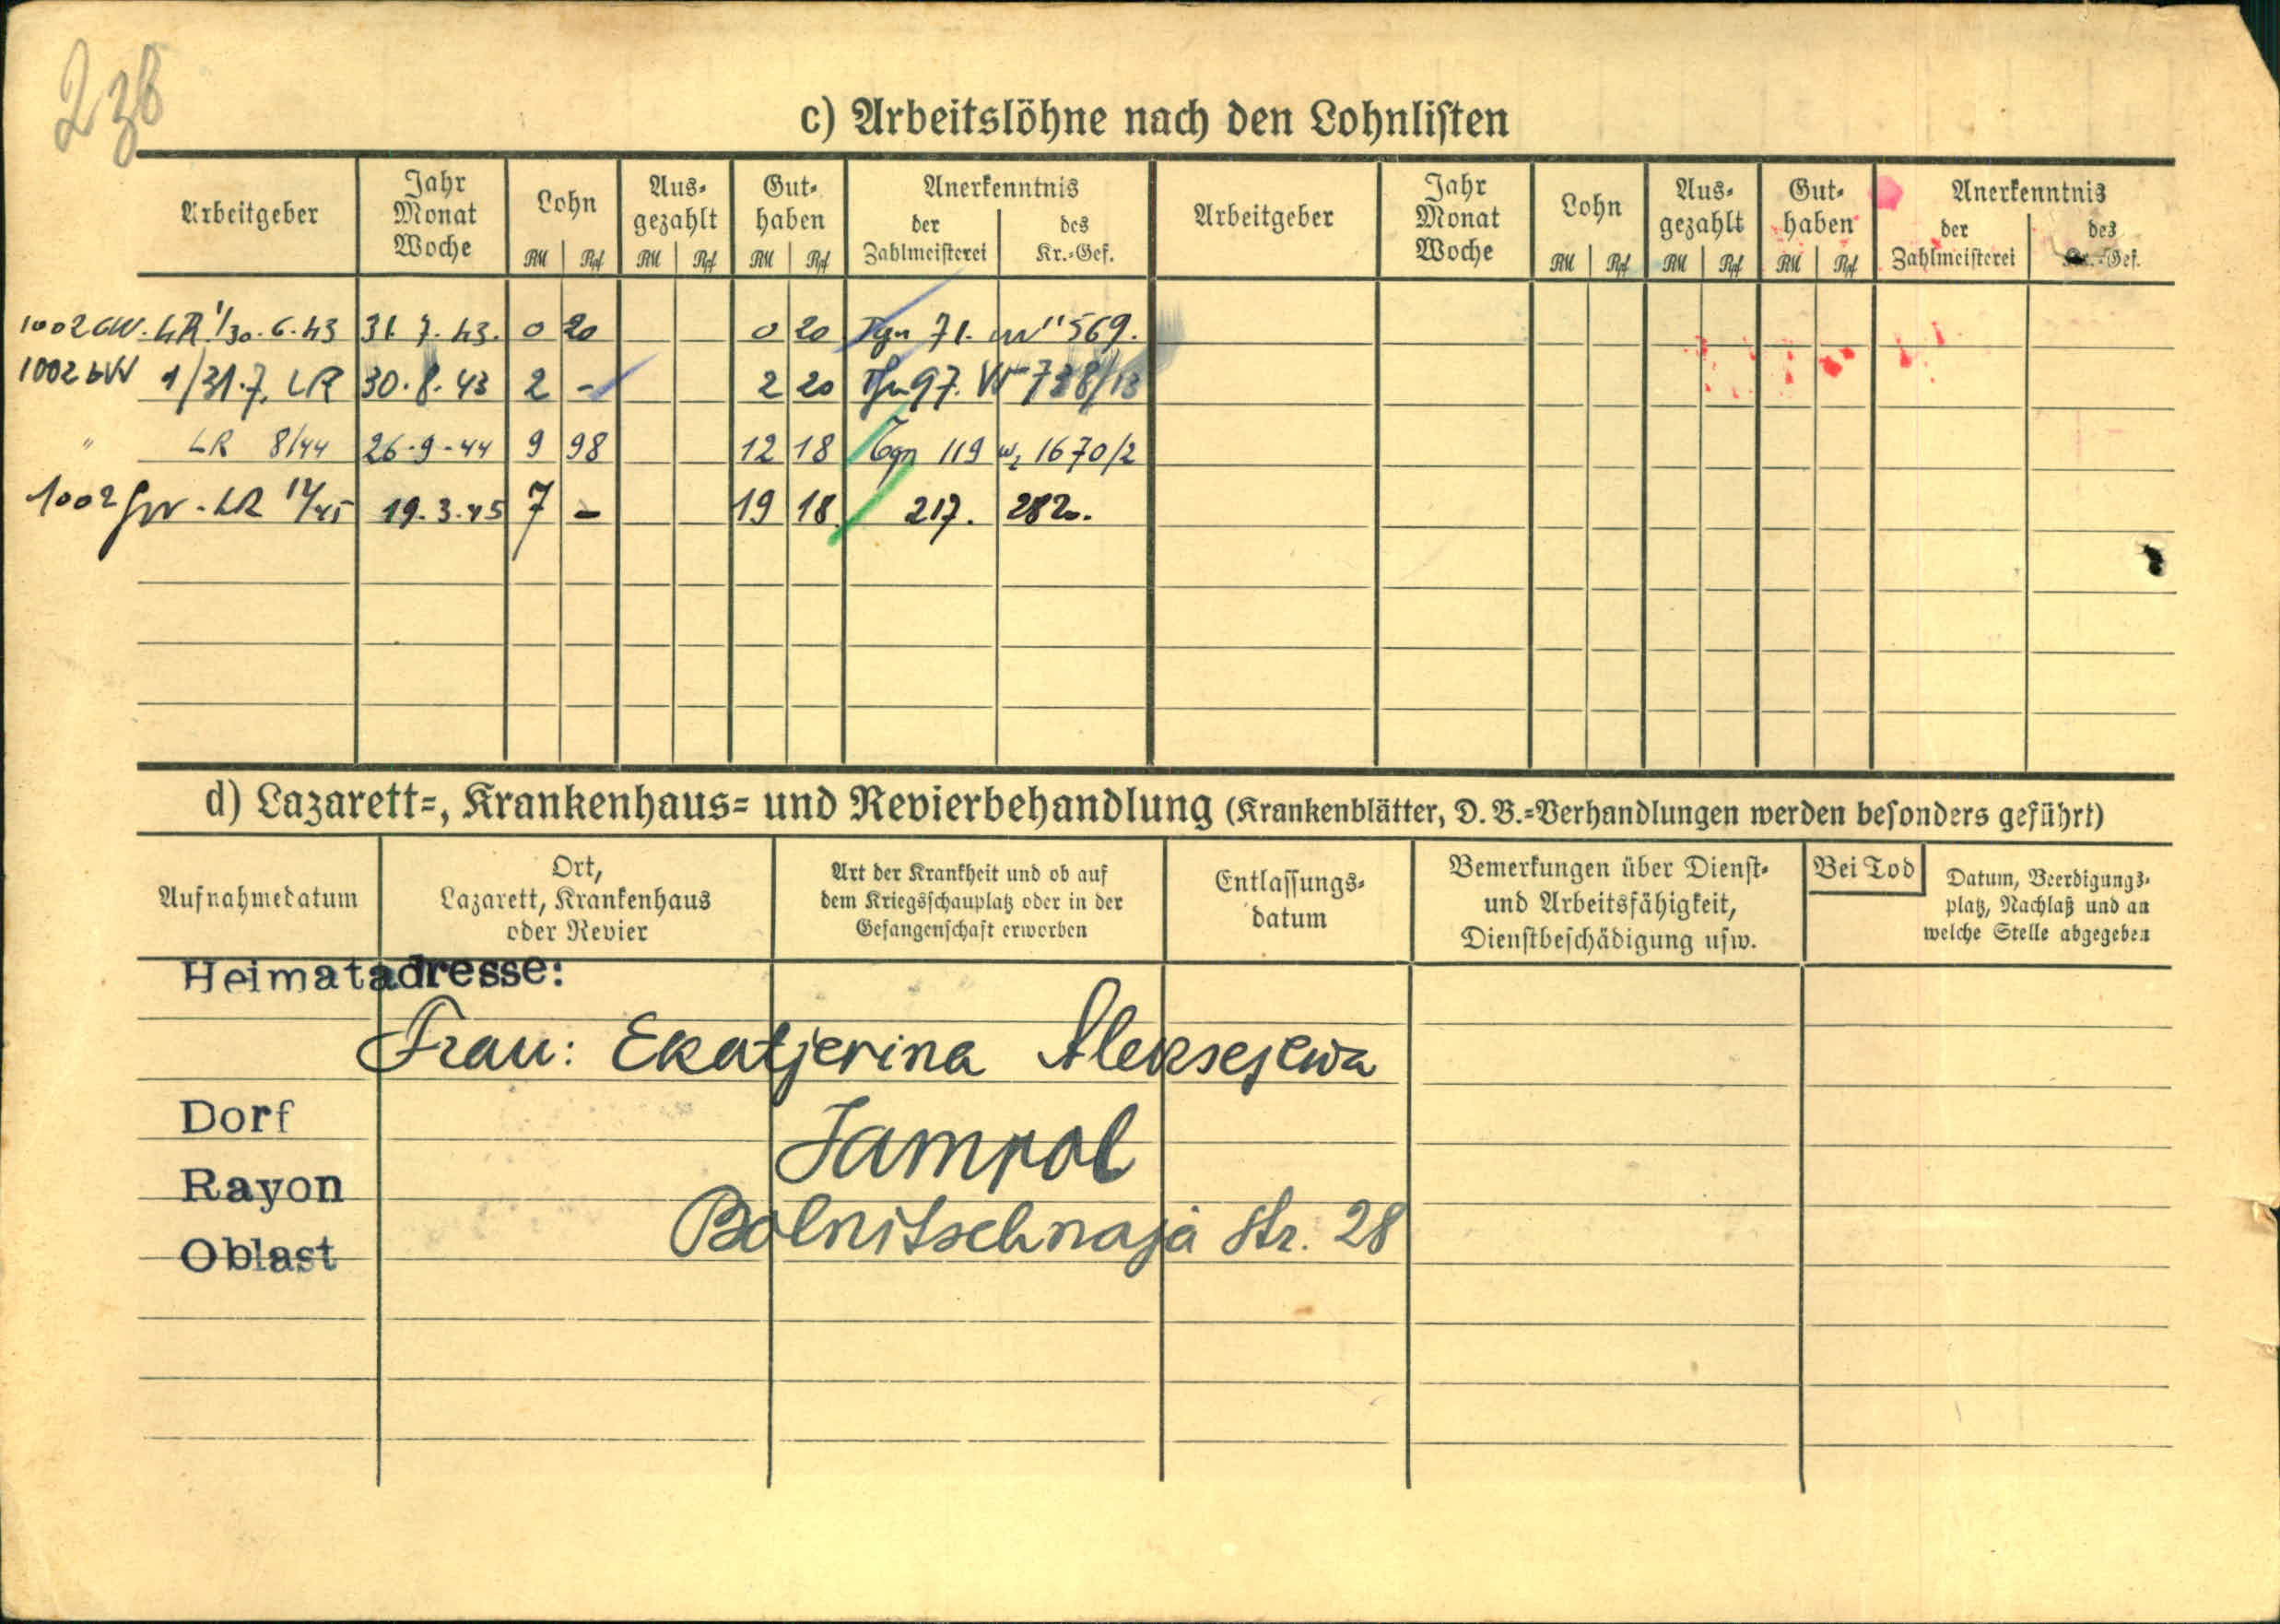 238
c) Arbeitslöhne nach den Lohnlisten
Arbeitgeber Jahr Monat Woche Lohn RM Rpf Aus-gezahlt RM Rpf Gut-haben RM Rpf Anerkenntnis der Zahlmeisterei des Kr.-Gef. Arbeitgeber Jahr Monat Woche Lohn RM Rpf Aus-gezahlt RM Rpf Gut-haben RM Rpf Anerkenntnis der Zahlmeisterei des Kr.-Gef.
1002 GW. LR 1/30.6.43 31.7.43. 0 20 0 20 71. 569.
1002 1/31.7. LR 30.8.43 2 - 2 20 97. 738/13
" LR 8/44 26.9.44 9 98 12 18 119 1670/2
1002 LR 19.3.45 7 - 19 18 217. 282.
d) Lazarett-, Krankenhaus- und Revierbehandlung (Krankenblätter, D. B.-Verhandlungen werden besonders geführt)
Aufnahmedatum Ort, Lazarett, Krankenhaus oder Revier Art der Krankheit und ob auf dem Kriegsschauplatz oder in der Gefangenschaft erworben Entlassungs-datum Bemerkungen über Dienst- und Arbeitsfähigkeit, Dienstbeschädigung usw. Bei Tod Datum, Beerdigungs-platz, Nachlaß und an welche Stelle abgegeben
Heimatadresse:
Frau: Ekatjerina Aleksejewa
Dorf Jampol
Rayon
Bolnitschnaja Str. 28
Oblast